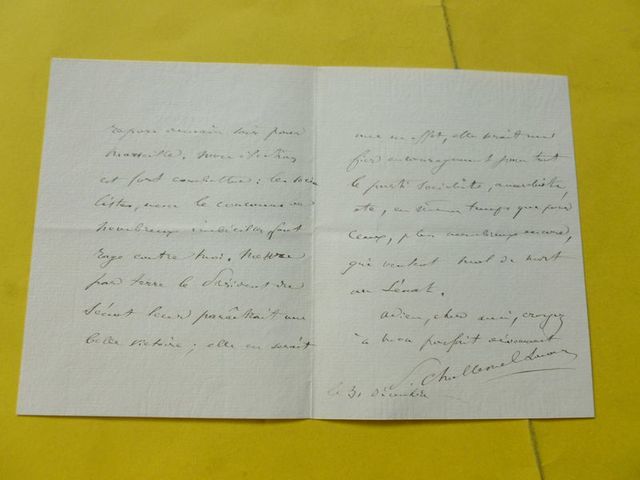 repars demain soir pour
Marseille. Mon élection
est fort combattue : les socia
listes, avec le concours de
nombreux imbéciles, font
rage contre moi. Mettre
par terre le Président du
Sénat leur paraîtrait une
belle victoire ; elle en serait
une en effet, elle serait un
fier encouragement pour tout
le parti socialiste, anarchiste,
etc, en même temps que pour
ceux, plus nombreux encore,
qui veulent mal de mort
au Sénat.
Adieu, cher ami, croyez
à mon parfait dévouement
P. Challemel Lacour
le 31 décembre